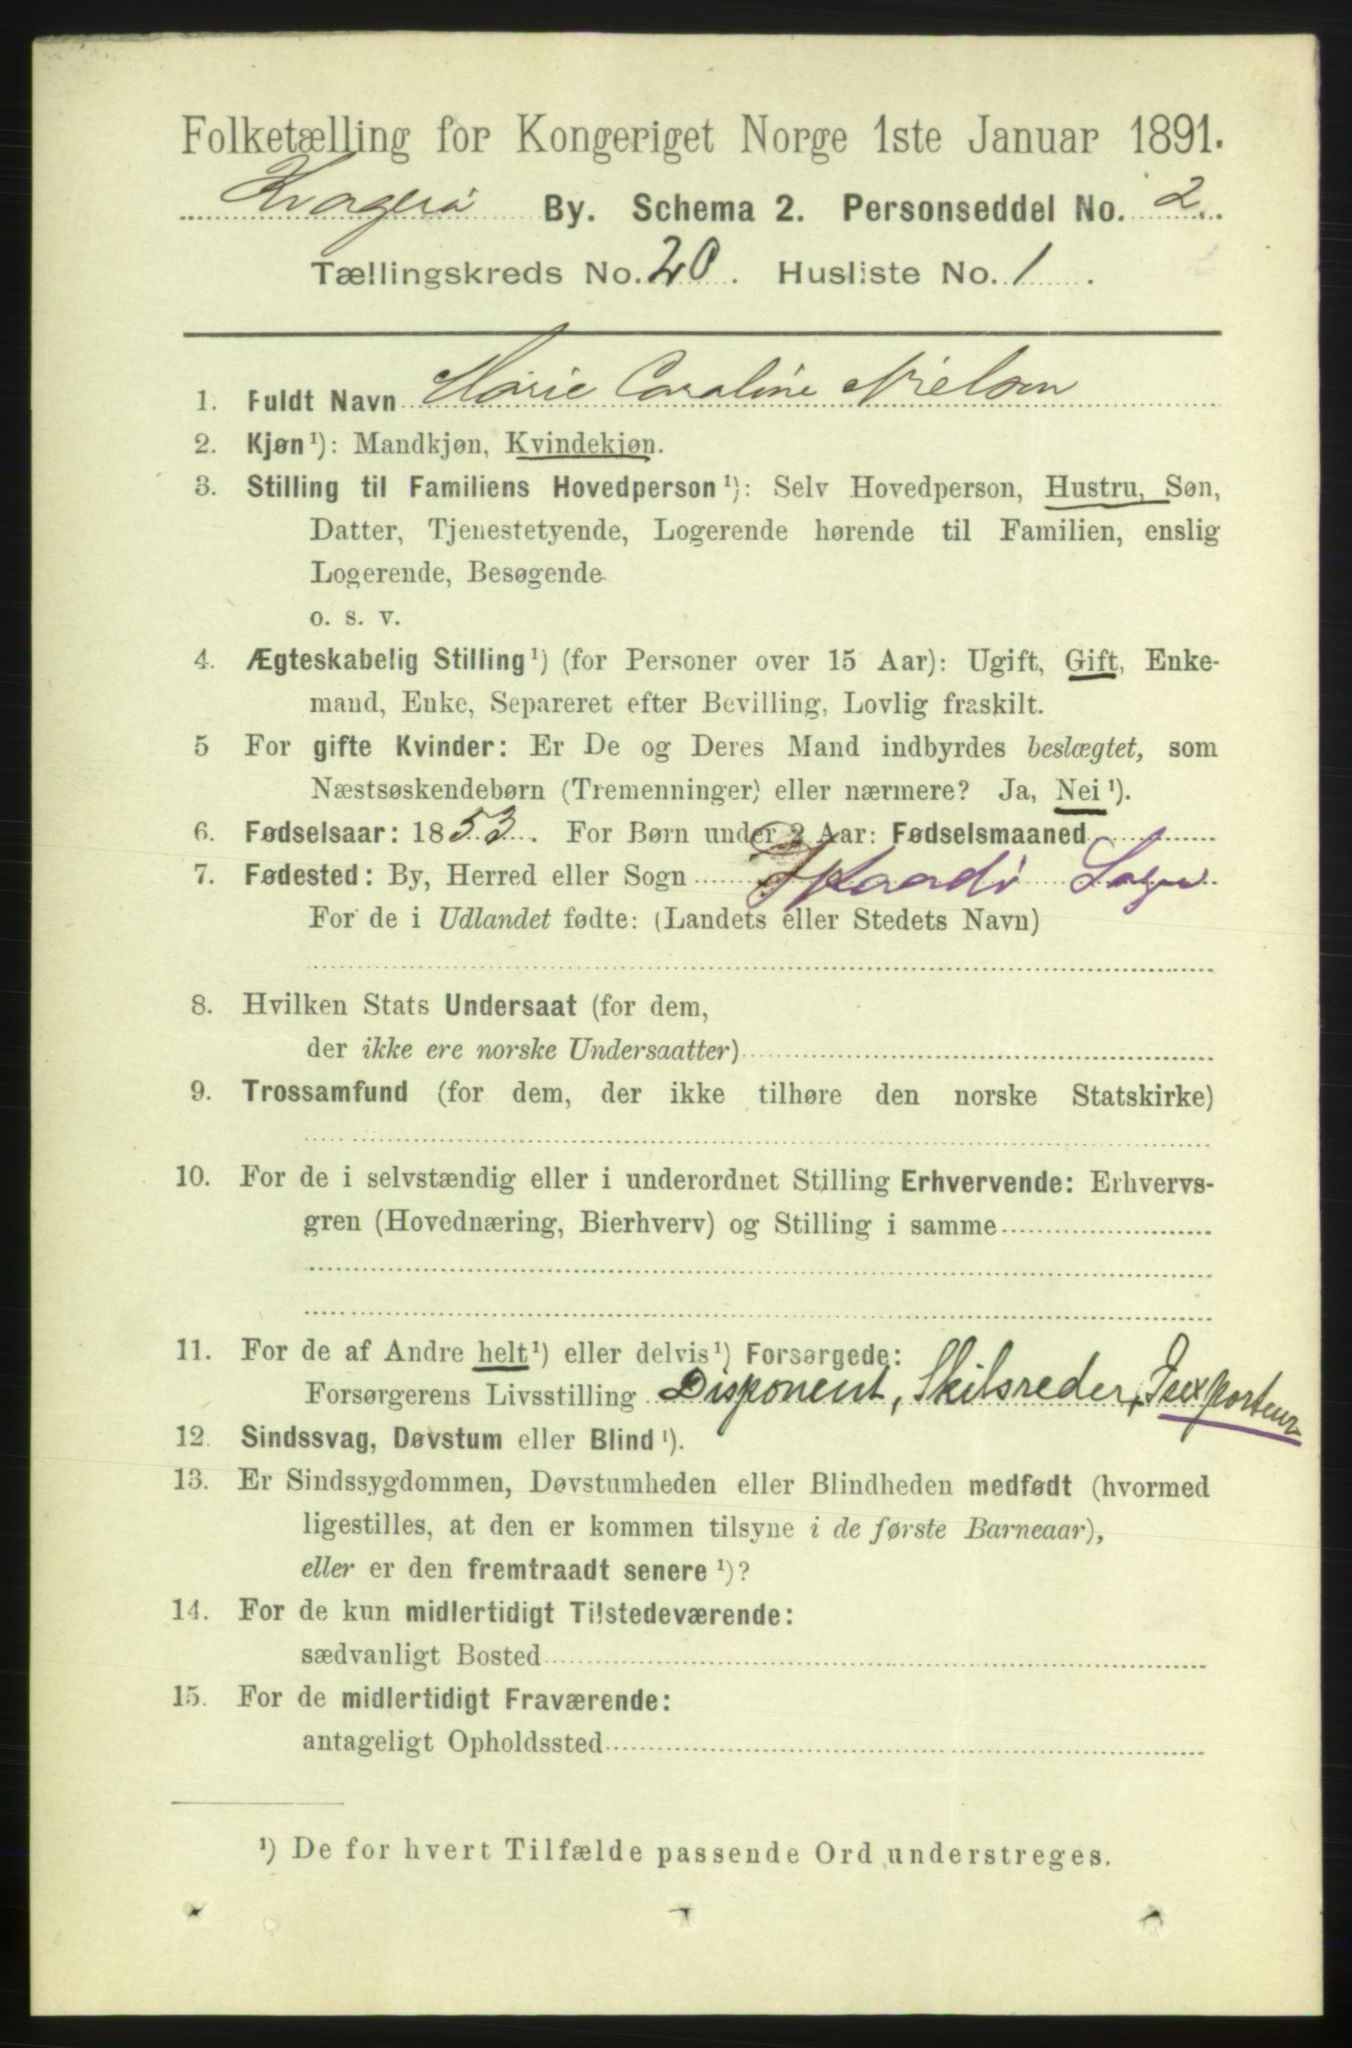 Folketælling for Kongeriget Norge 1ste Januar 1891.
Kragerø By. Schema 2. Personseddel No. 2.
Tællingskreds No. 20. Husliste No. 1.
1. Fuldt Navn Marie Caroline Nielsen
2. Kjøn ¹): Mandkjøn, Kvindekjøn.
3. Stilling til Familiens Hovedperson ¹): Selv Hovedperson, Hustru, Søn,
Datter, Tjenestetyende, Logerende hørende til Familien, enslig
Logerende, Besøgende
o. s. v.
4. Ægteskabelig Stilling ¹) (for Personer over 15 Aar): Ugift, Gift, Enke-
mand, Enke, Separeret efter Bevilling, Lovlig fraskilt.
5 For gifte Kvinder: Er De og Deres Mand indbyrdes beslægtet, som
Næstsøskendebørn (Tremenninger) eller nærmere? Ja, Nei ¹).
6. Fødselsaar: 1853. For Børn under 2 Aar: Fødselsmaaned
7. Fødested: By, Herred eller Sogn Skaadø Sogn
For de i Udlandet fødte: (Landets eller Stedets Navn)
8. Hvilken Stats Undersaat (for dem,
der ikke ere norske Undersaatter)
9. Trossamfund (for dem, der ikke tilhøre den norske Statskirke)
10. For de i selvstændig eller i underordnet Stilling Erhvervende: Erhvervs-
gren (Hovednæring, Bierhverv) og Stilling i samme
11. For de af Andre helt ¹) eller delvis ¹) Forsørgede:
Forsørgerens Livsstilling Disponent, Skibsreder, Isexporteur
12. Sindssvag, Døvstum eller Blind ¹).
13. Er Sindssygdommen, Døvstumheden eller Blindheden medfødt (hvormed
ligestilles, at den er kommen tilsyne i de første Barneaar),
eller er den fremtraadt senere ¹)?
14. For de kun midlertidigt Tilstedeværende:
sædvanligt Bosted
15. For de midlertidigt Fraværende:
antageligt Opholdssted
¹) De for hvert Tilfælde passende Ord understreges.